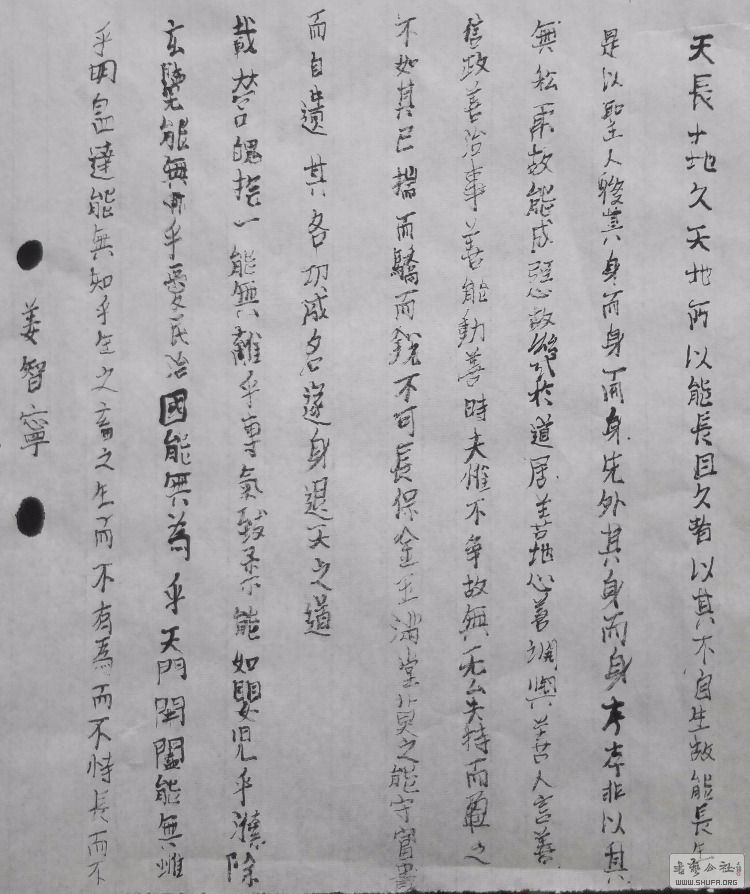 天長地久天地所以能長且久者以其不自生故能長生
是以聖人後其身而身而身先外其身而身存存非以其
無私耶故能成惡故幾於道居善地心善淵與善人言善
信政善治事善能動善時夫惟不爭故無尤失持而盈之
不如其已揣而驕而銳不可長保金玉滿堂莫之能守富貴
而自遺其各功成名遂身退天之道
哉營魄抱一能無離乎專氣致柔能如嬰兒乎滌除
玄覽能無疵乎愛民治國能無為乎天門開闔能無雌
乎明白達能無知乎生之畜之生而不有為而不恃長而不
姜智寧
書藝公社
WWW.SHUFA.ORG